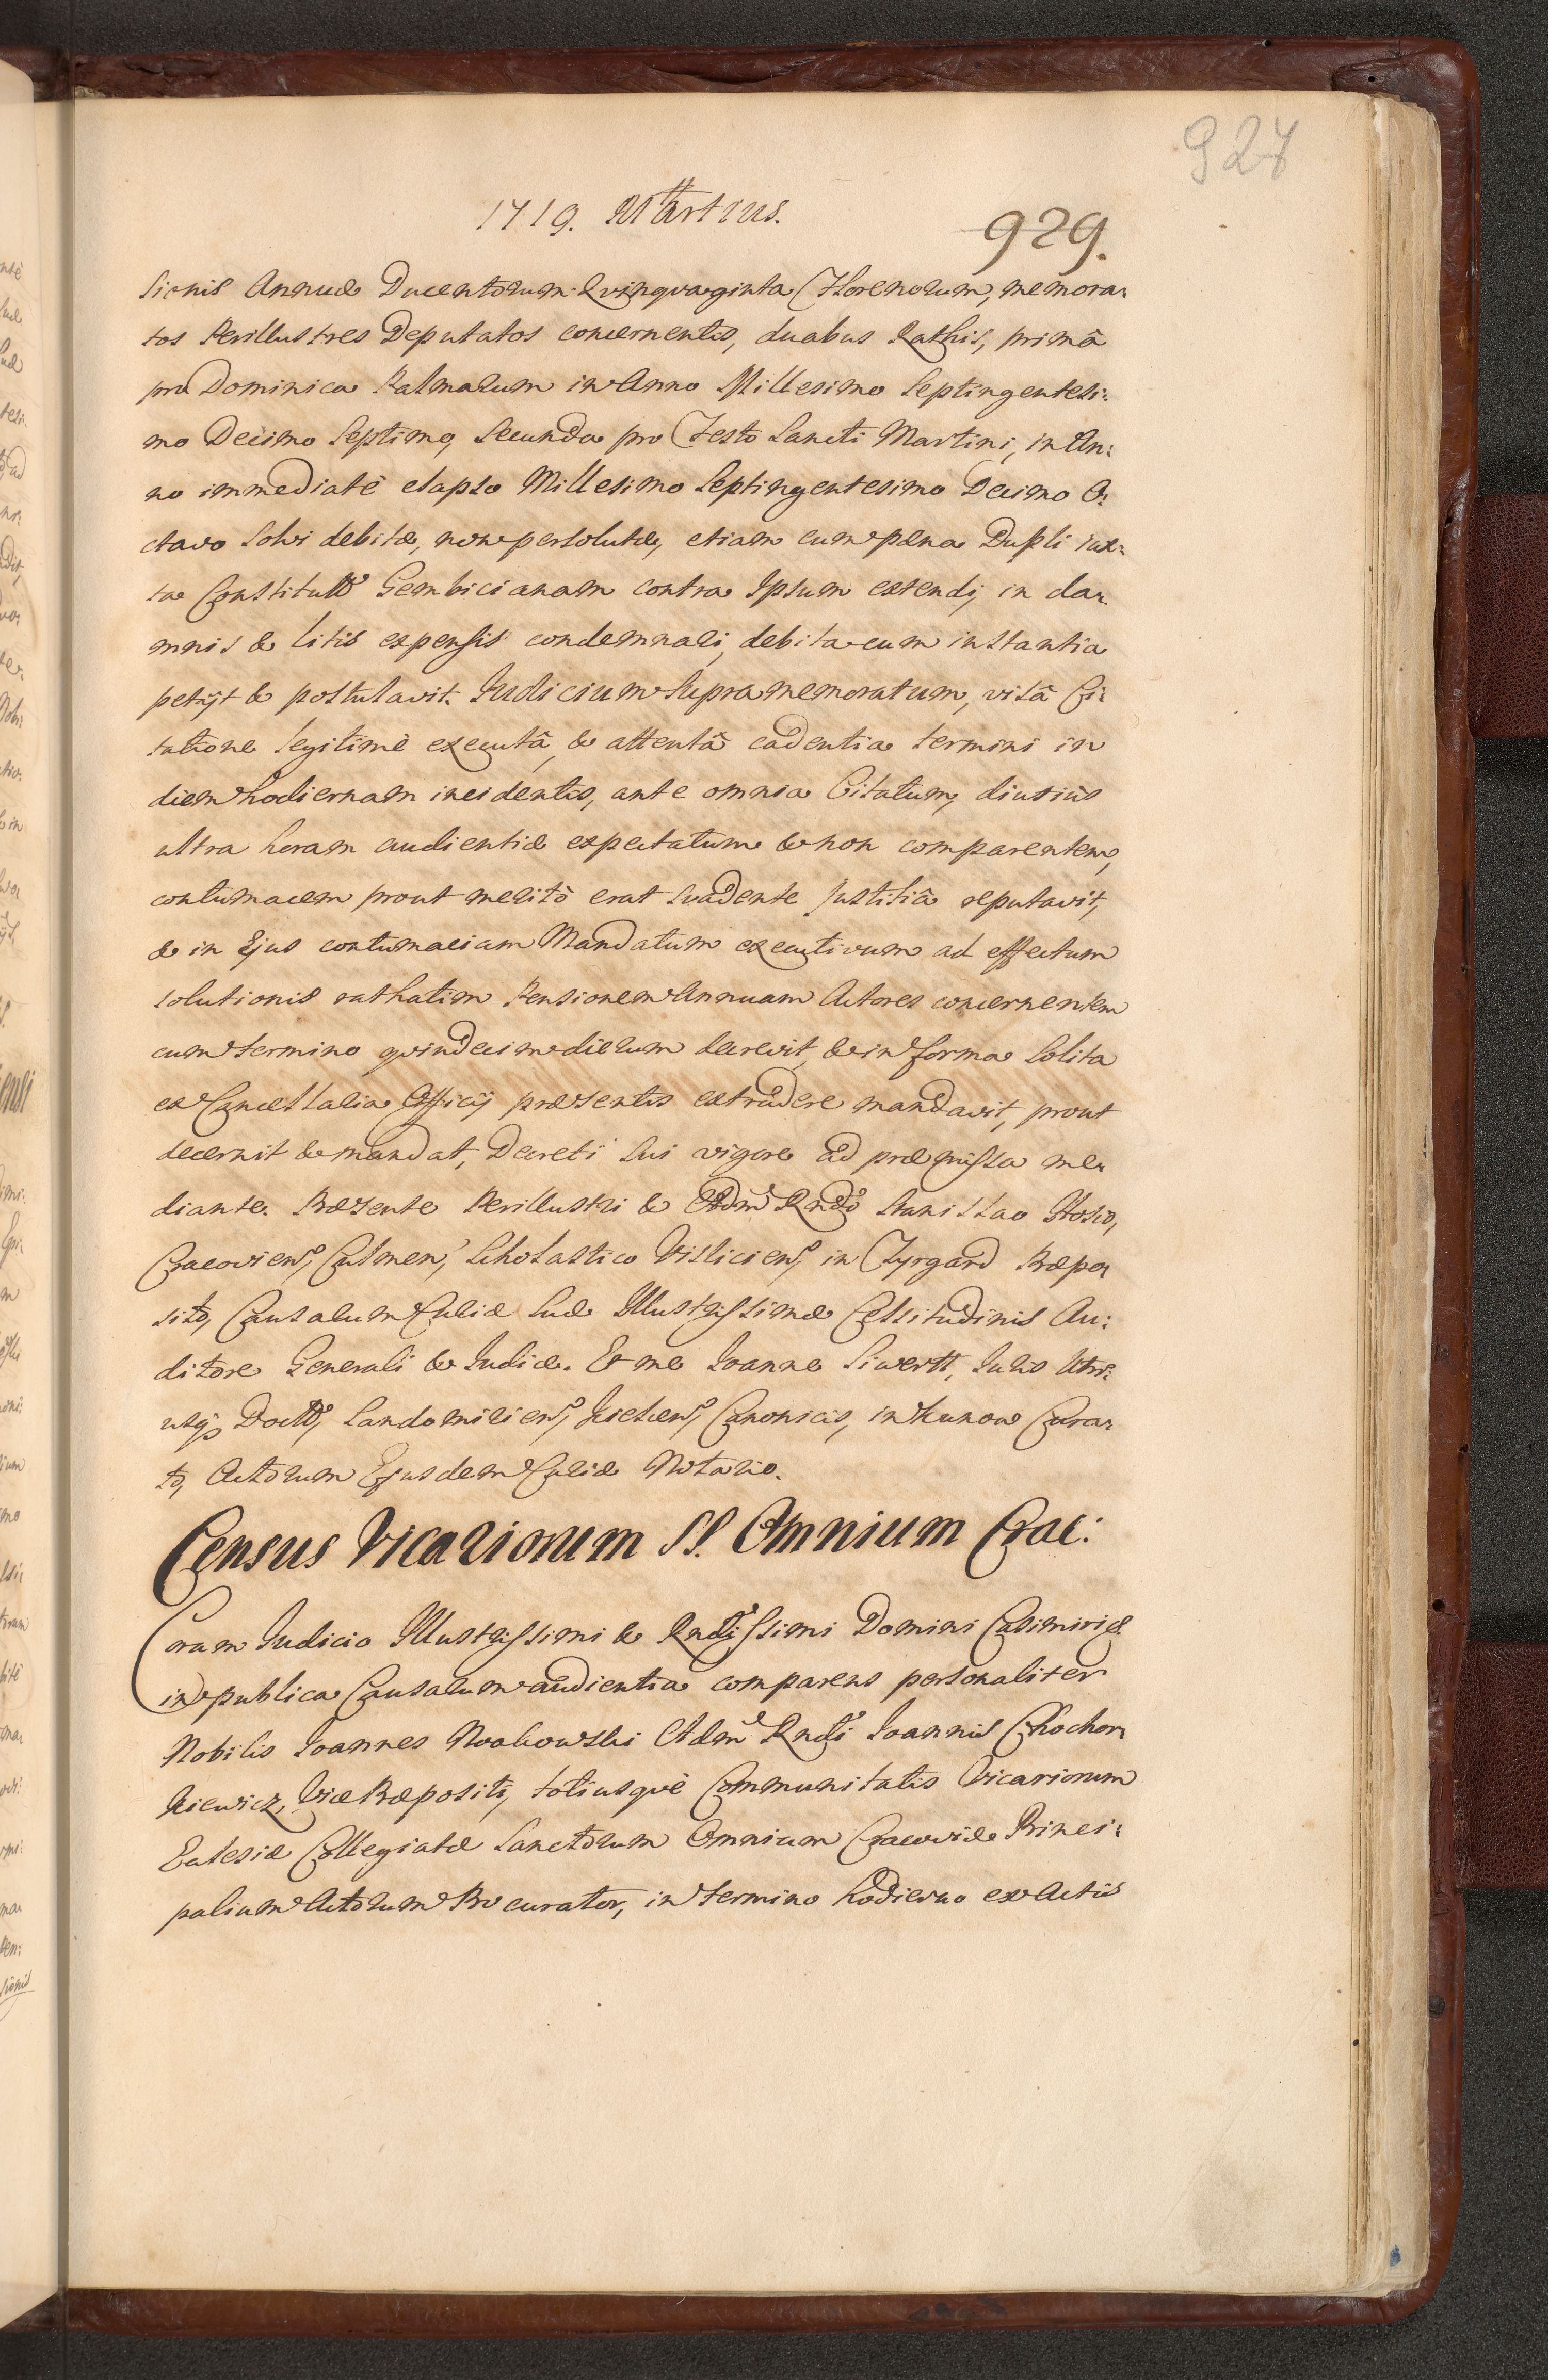 927
1719. Martius.
929.
sionis Annuæ Ducentorum Qvinqvaginta Florenorum, memora-
tos Perillustres Deputatos concernentis, duabus Rathis, primâ
pro Dominica Palmarum in Anno Millesimo Septingentesi:
mo Decimo Septimo, Secunda pro Festo Sancti Martini, in An:
no immediatè elapso Millesimo Septingentesimo Decimo O:
ctavo solvi debitæ, non persolutæ, etiam cum pæna Dupli iux-
ta Constitutt Gembicianam contra Ipsum extendi, in da-
mnis & litis expensis condemnari, debita cum instantia
petijt & postulavit. Iudicium Supramemoratum, visâ Ci:
tatione legitimè executâ, & attentâ cadentia termini in
diem hodiernam incidentis, ante omnia Citatum, diutiùs
ultra horam audientiæ expectatum & non comparentem,
contumacem prout meritò erat suadente Justitiâ reputavit,
& in Ejus contumaciam Mandatum executivum ad effectum
solutionis rathatim Pensionem Annuam Actores concernentem
cum termino qvindecim dierum decrevit, & in forma solita
ex Cancellaria Officij præsentis extradere mandavit, prout
decernit & mandat, Decreti sui vigore ad præmissa me-
diante. Præsente Perillustri & Adm Rndo Stanislao Hosio,
Cracovien, Culmen, Scholastico Vislicien, in Fyrgard Præpo-
sito, Causarum Curiæ Suæ Illustrissimæ Celsitudinis Au:
ditore Generali & Iudice. Et me Ioanne Siwertt, Iuris Utri:
usq Doctt, Sandomirien, Kielcen, Canonico, in Kunow Cura-
to, Actorum Ejusdem Curiæ Notario.
Census Vicariorum SS. Omnium Crac:
Coram Iudicio Illustrissimi & Rndissimi Domini Casimiri &
in publica Causarum audientia comparens personaliter
Nobilis Ioannes Nookowski Adm Rndi Ioannis Chochor-
kiewicz, Vice Præpositi, totiusqvè Communitatis Vicariorum
Eclesiæ Collegiatæ Sanctorum Omnium Cracoviæ Princi:
palium Actorum Procurator, in termino hodierno ex Actis